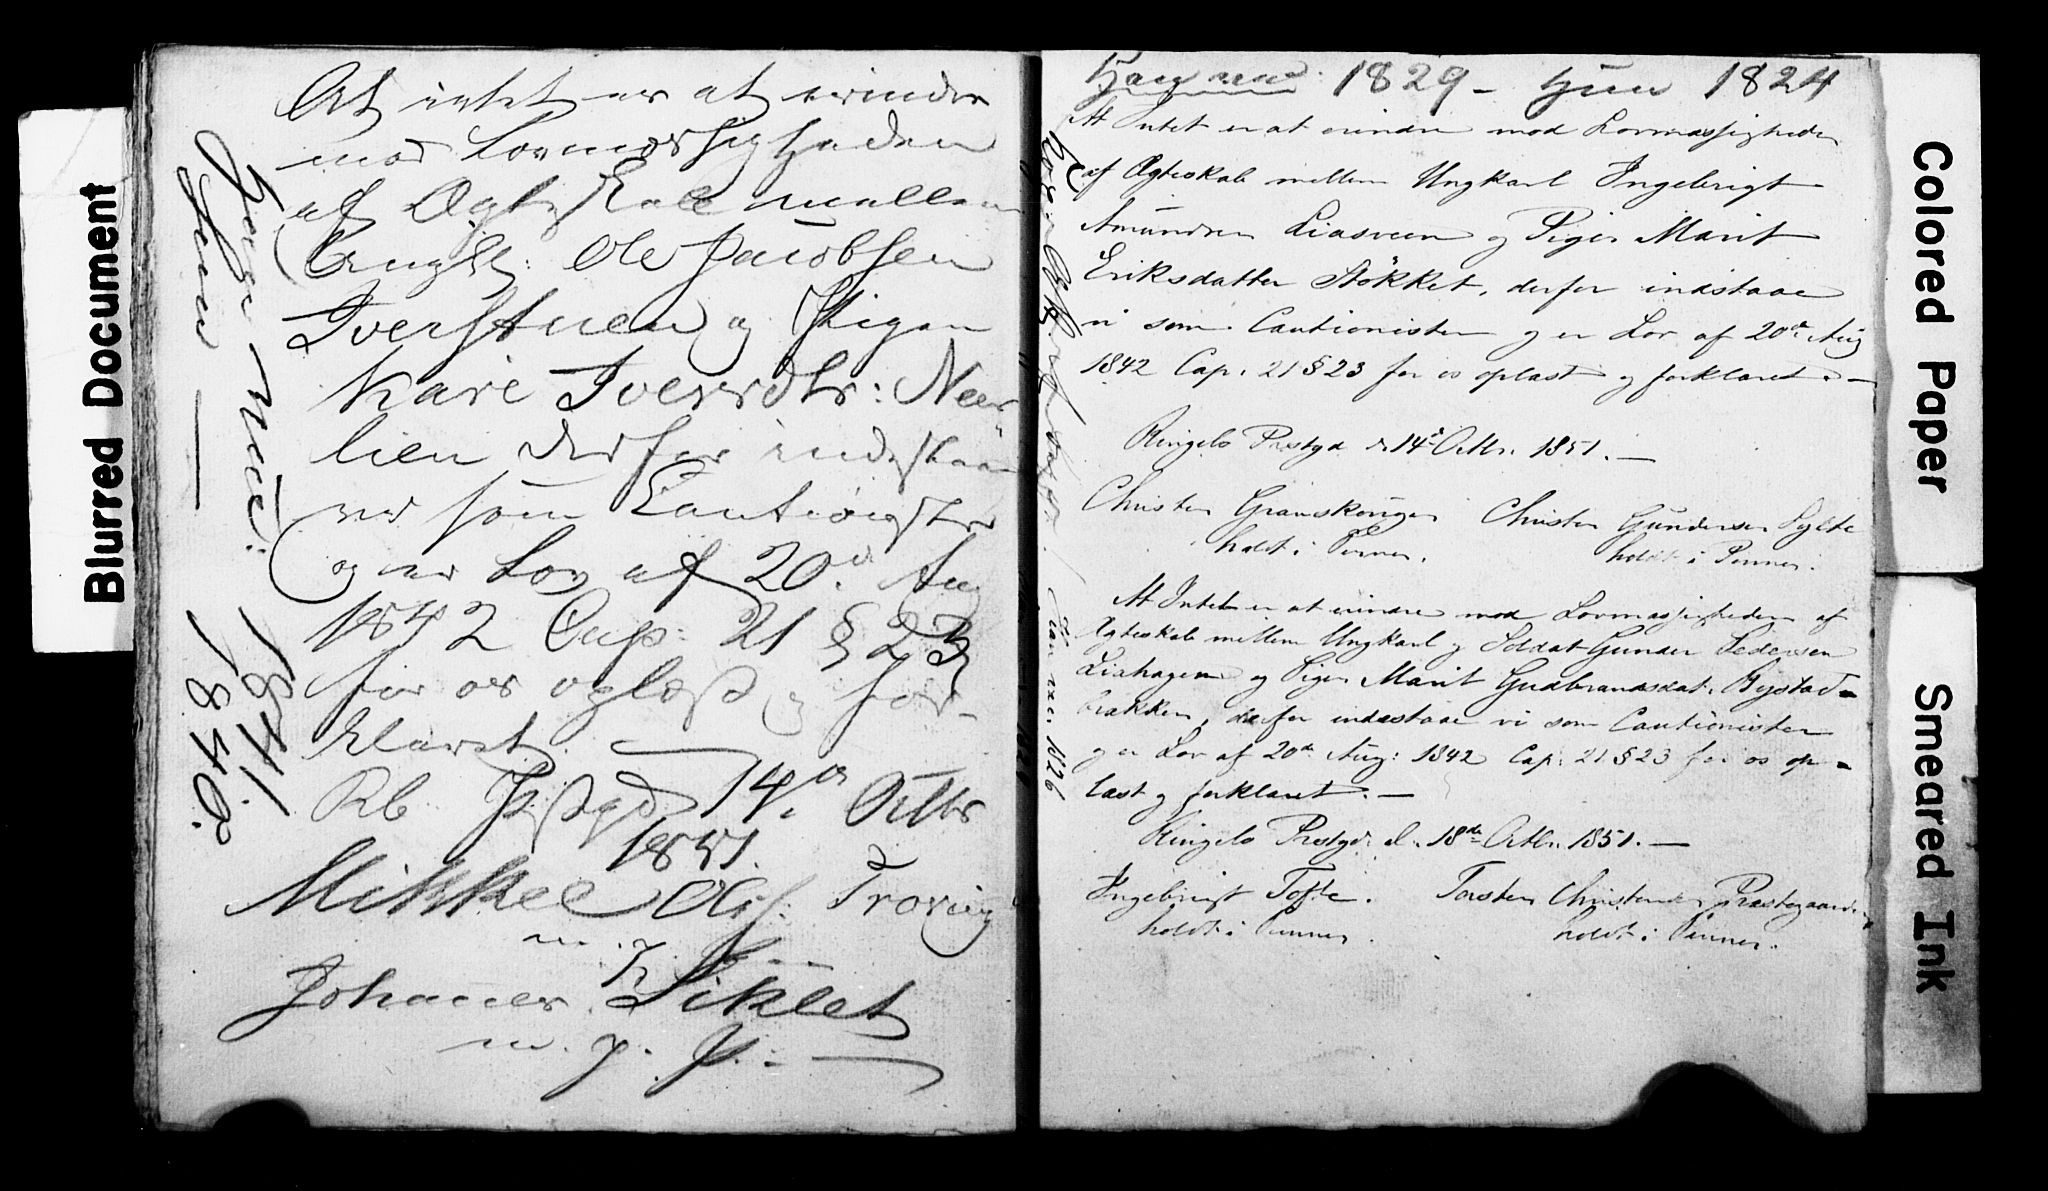 Blurred Document
At intet er at erindre
mod Lovmæssigheden
af Ægteskab mellem
Ungk: Ole Jacobsen
Iverstuen og Pigen
Kari Iversdtr: Neer
lien derfor indestaae
vi som Cautionister
og er Lov af 20d Aug
1842 Cap: 21 § 23
for os oplæst og for-
klaret.
Rb Pstgd 14de Octbr
1851.
Mikkel Ols:
m. p. P.
Johannes
m. p. P.
1841.
1840.
Ham 1829 - Hun 1824
At Intet er at erindre mod Lovmæssigheden
af Ægteskab mellem Ungkarl Ingebrigt
Amundsen Liasveen og Pigen Marit
Eriksdatter Stökket, derfor indstaae
vi som Cautionister og er Lov af 20de Aug
1842 Cap. 21 § 23 for os oplæst og forklaret. —
Ringebo Prstgd d. 14d Octbr. 1851. —
Christen Christen Gundersen Sylte
holdt i Pennen. holdt i Pennen.
At Intet er at erindre mod Lovmæssigheden af
Ægteskab mellem Ungkarl og Soldat Gunder Pedersen
Liahagen og Pigen Marit Gudbrandsdat.
bakken, derfor indestaae vi som Cautionister
og er Lov af 20de Aug: 1842 Cap: 21 § 23 for os op-
læst og forklaret. —
Ringebo Prstgd. d. 18de Octbr. 1851. —
Ingebrigt Tofte. Torsten Christensen Præstegaarden
holdt i Pennen. holdt i Pennen.
1826
Colored Paper
Smeared Ink